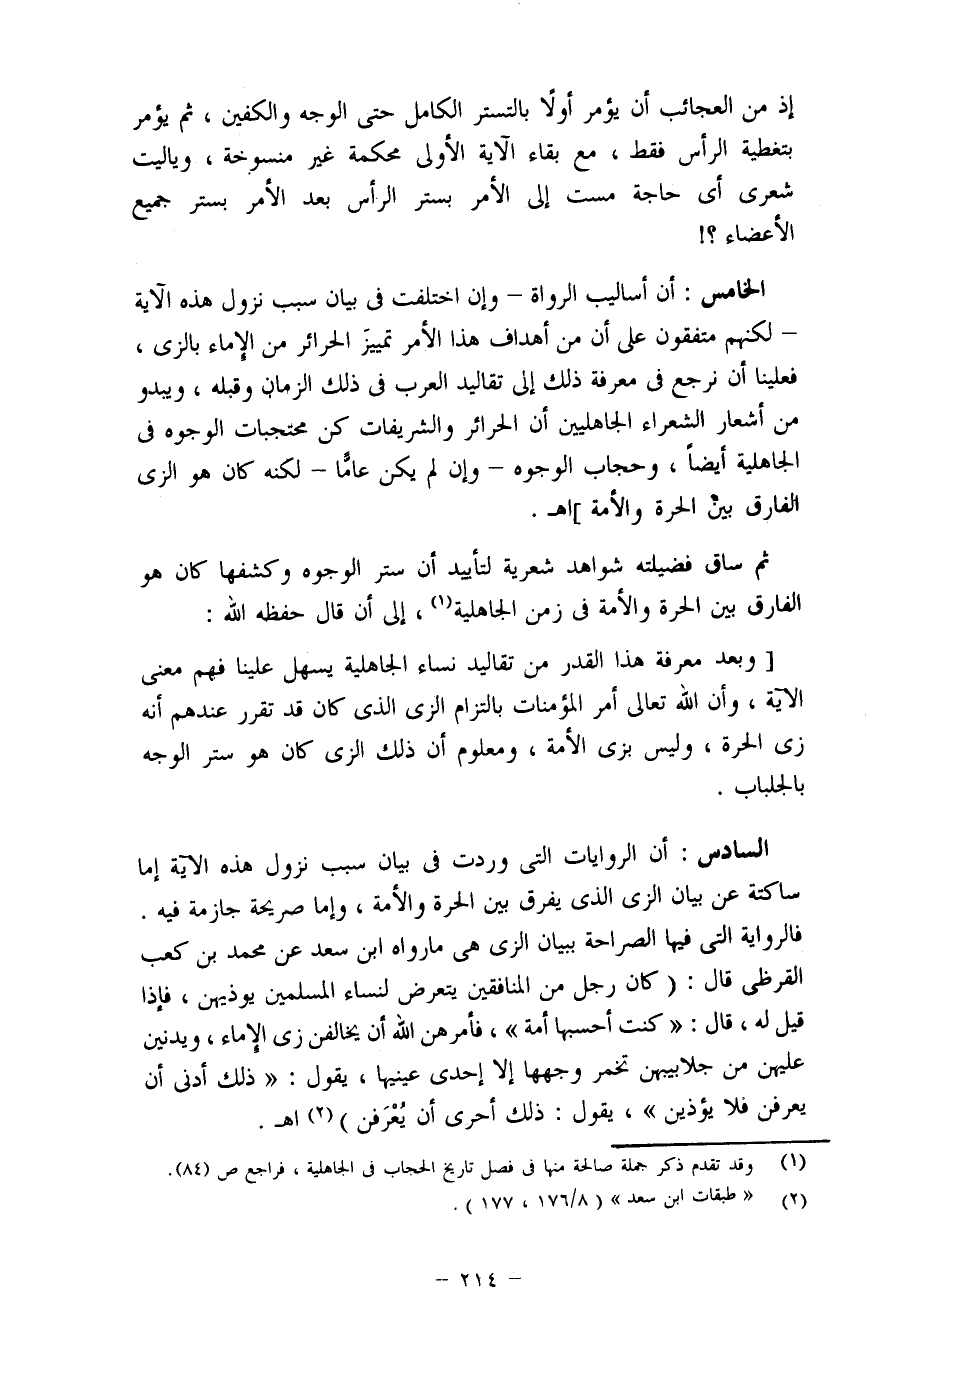 إذ من العجائب أن يؤمر أولًا بالتستر الكامل حتى الوجه والكفين ، ثم يؤمر
بتغطية الرأس فقط ، مع بقاء الآية الأولى محكمة غير منسوخة ، وياليت
شعرى أى حاجة مست إلى الأمر بستر الرأس بعد الأمر بستر جميع
الأعضاء ؟!
الخامس : أن أساليب الرواة – وإن اختلفت فى بيان سبب نزول هذه الآية
– لكنهم متفقون على أن من أهداف هذا الأمر تمييزَ الحرائر من الإماء بالزى ،
فعلينا أن نرجع فى معرفة ذلك إلى تقاليد العرب فى ذلك الزمان وقبله ، ويبدو
من أشعار الشعراء الجاهليين أن الحرائر والشريفات كن محتجبات الوجوه فى
الجاهلية أيضاً ، وحجاب الوجوه – وإن لم يكن عامًّا – لكنه كان هو الزى
الفارق بين الحرة والأمة ]اهـ .
ثم ساق فضيلته شواهد شعرية لتأييد أن ستر الوجوه وكشفها كان هو
الفارق بين الحرة والأمة فى زمن الجاهلية(١) ، إلى أن قال حفظه الله :
[ وبعد معرفة هذا القدر من تقاليد نساء الجاهلية يسهل علينا فهم معنى
الآية ، وأن الله تعالى أمر المؤمنات بالتزام الزى الذى كان قد تقرر عندهم أنه
زى الحرة ، وليس بزى الأمة ، ومعلوم أن ذلك الزى كان هو ستر الوجه
بالجلباب .
السادس : أن الروايات التى وردت فى بيان سبب نزول هذه الآية إما
ساكتة عن بيان الزى الذى يفرق بين الحرة والأمة ، وإما صريحة جازمة فيه .
فالرواية التى فيها الصراحة ببيان الزى هى مارواه ابن سعد عن محمد بن كعب
القرظى قال : ( كان رجل من المنافقين يتعرض لنساء المسلمين يوذيهن ، فإذا
قيل له ، قال : « كنت أحسبها أمة » ، فأمرهن الله أن يخالفن زى الإماء ، ويدنين
عليهن من جلابيبهن تخمر وجهها إلا إحدى عينيها ، يقول : « ذلك أدنى أن
يعرفن فلا يؤذين » ، يقول : ذلك أحرى أن يُعْرَفن )(٢) اهـ .
(١) وقد تقدم ذكر جملة صالحة منها فى فصل تاريخ الحجاب فى الجاهلية ، فراجع ص (٨٤).
(٢) « طبقات ابن سعد » ( ١٧٦/٨ ، ١٧٧ ) .
– ٢١٤ –